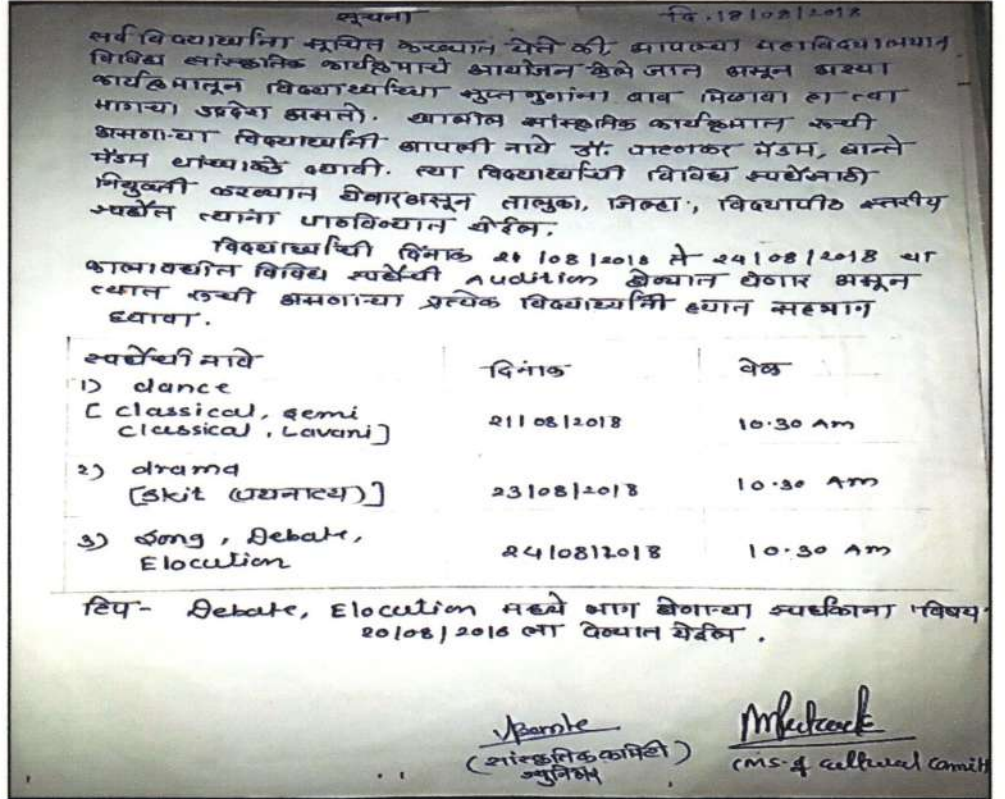 सूचना दि.18/08/2018
सर्व विद्यार्थ्यांना सूचित करण्यात येते की, आपल्या महाविद्यालयात
विविध सांस्कृतिक कार्यक्रमाचे आयोजन केले जात असून अश्या
कार्यक्रमातून विद्यार्थ्यांच्या सुप्त गुणांना वाव मिळावा हा त्या
मागचा उद्देश असतो. खालील सांस्कृतिक कार्यक्रमात रूची
असणाऱ्या विद्यार्थ्यांनी आपली नावे डॉ. पाटणकर मॅडम, बान्ते
मॅडम यांच्याकडे द्यावी. त्या विद्यार्थ्यांची विविध स्पर्धेसाठी
नियुक्ती करण्यात येणार असून तालुका, जिल्हा, विद्यापीठ स्तरीय
स्पर्धेत त्यांना पाठविण्यात येईल.
विद्यार्थ्यांची दिनांक 21/08/2018 ते 24/08/2018 या
कालावधीत विविध स्पर्धेची Audition घेण्यात येणार असून
त्यात रूची असणाऱ्या प्रत्येक विद्यार्थ्यांनी ह्यात सहभाग
घ्यावा.
स्पर्धेची नावे दिनांक वेळ
1) dance
[classical, semi
classical, Lavani] 21/08/2018 10.30 Am
2) drama
[skit (पथनाट्य)] 23/08/2018 10.30 Am
3) song, Debate,
Elocution 24/08/2018 10.30 Am
टिप- Debate, Elocution मध्ये भाग घेणाऱ्या स्पर्धकांना विषय
20/08/2018 ला देण्यात येईल.
(सांस्कृतिक कमिटी)
ज्युनिअर
cultural